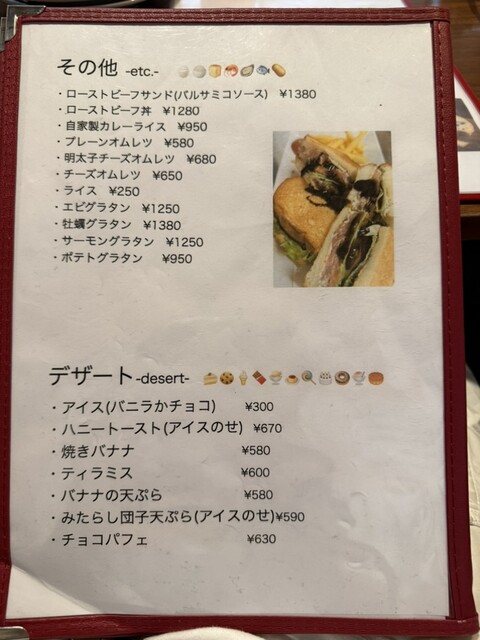 その他 -etc.-
・ローストビーフサンド(バルサミコソース) ¥1380
・ローストビーフ丼 ¥1280
・自家製カレーライス ¥950
・プレーンオムレツ ¥580
・明太子チーズオムレツ ¥680
・チーズオムレツ ¥650
・ライス ¥250
・エビグラタン ¥1250
・牡蠣グラタン ¥1380
・サーモングラタン ¥1250
・ポテトグラタン ¥950
デザート -desert-
・アイス(バニラかチョコ) ¥300
・ハニートースト(アイスのせ) ¥670
・焼きバナナ ¥580
・ティラミス ¥600
・バナナの天ぷら ¥580
・みたらし団子天ぷら(アイスのせ)¥590
・チョコパフェ ¥630